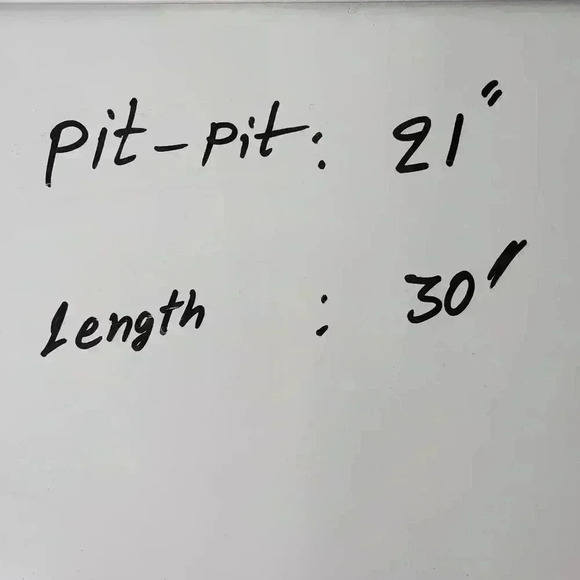 Pit-Pit: 21"
Length : 30"